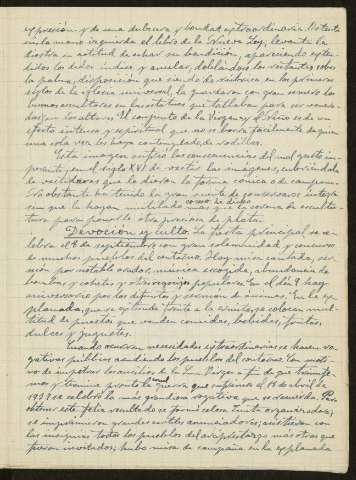 expresión y de una dulzura y bondad extraordinarias. Ostenta
en la mano izquierda el libro de la Nueva Ley, levanta la
diestra en actitud de echar su bendición, apareciendo exten-
didos los dedos índice y anular, doblándose los restantes sobre
la palma, disposición que siendo de rúbrica en los primeros
siglos de la iglesia universal, la guardaron con gran esmero los
buenos escultores en las estatuas que tallaban para ser venera-
das en los altares. El conjunto de la Virgen y el Niño es de un
efecto intenso y espiritual que no se borra fácilmente de quien
una sola vez los haya contemplado de rodillas.
Esta imagen sufrió las consecuencias del mal gusto im-
perante en el siglo XVI de vestir las imágenes, cubriéndola
de vestiduras que le daban la forma cónica de campana.
No obstante ha tenido la gran suerte de conservarse íntegra
sin que la hayan mutilado como he dicho más que la corona de escultu-
ra para ponerle otra preciosa de plata.
Devoción y culto. La fiesta principal se ce-
lebra el 8 de septiembre con gran solemnidad y concurso
de muchos pueblos del contorno. Hay misa cantada, ser-
món por notable orador, música escogida, abundancia de
bombas y cohetes y otros regocijos populares. En el día 9 hay
aniversario por los difuntos y sermón de ánimas. En la ex-
planada, que se extiende frente a la ermita, se colocan mul-
titud de puestos que venden comidas, bebidas, frutas,
dulces y juguetes.
Cuando ocurren necesidades extraordinarias se hacen ro-
gativas públicas acudiendo los pueblos del contorno. Con moti-
vo de impetrar los auxilios de la Sma. Virgen a fin de que triunfe-
mos y termine pronto la cruel guerra que sufrimos el 18 de abril de
1937 se celebró la más grandiosa rogativa que se recuerda. Para
obtener este feliz resultado se formó celosa Junta organizadora;
se imprimieron grandes carteles anunciadores; asistieron con
las insignias todos los pueblos del arciprestazgo más otros que
fueron invitados; hubo misa de campaña en la explanada